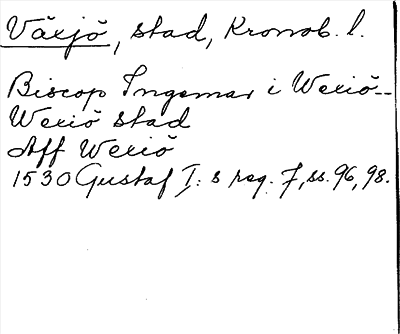 Växjö, stad, Kronob. l.
Biscop Ingemar i Wexiö--
Wexiö stad
Aff Wexiö
1530 Gustaf I:s reg. 7, ss. 96, 98.